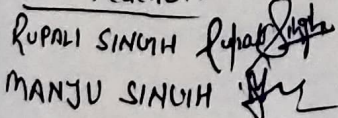 RUPALI SINGH Rupali Singh
MANJU SINGH